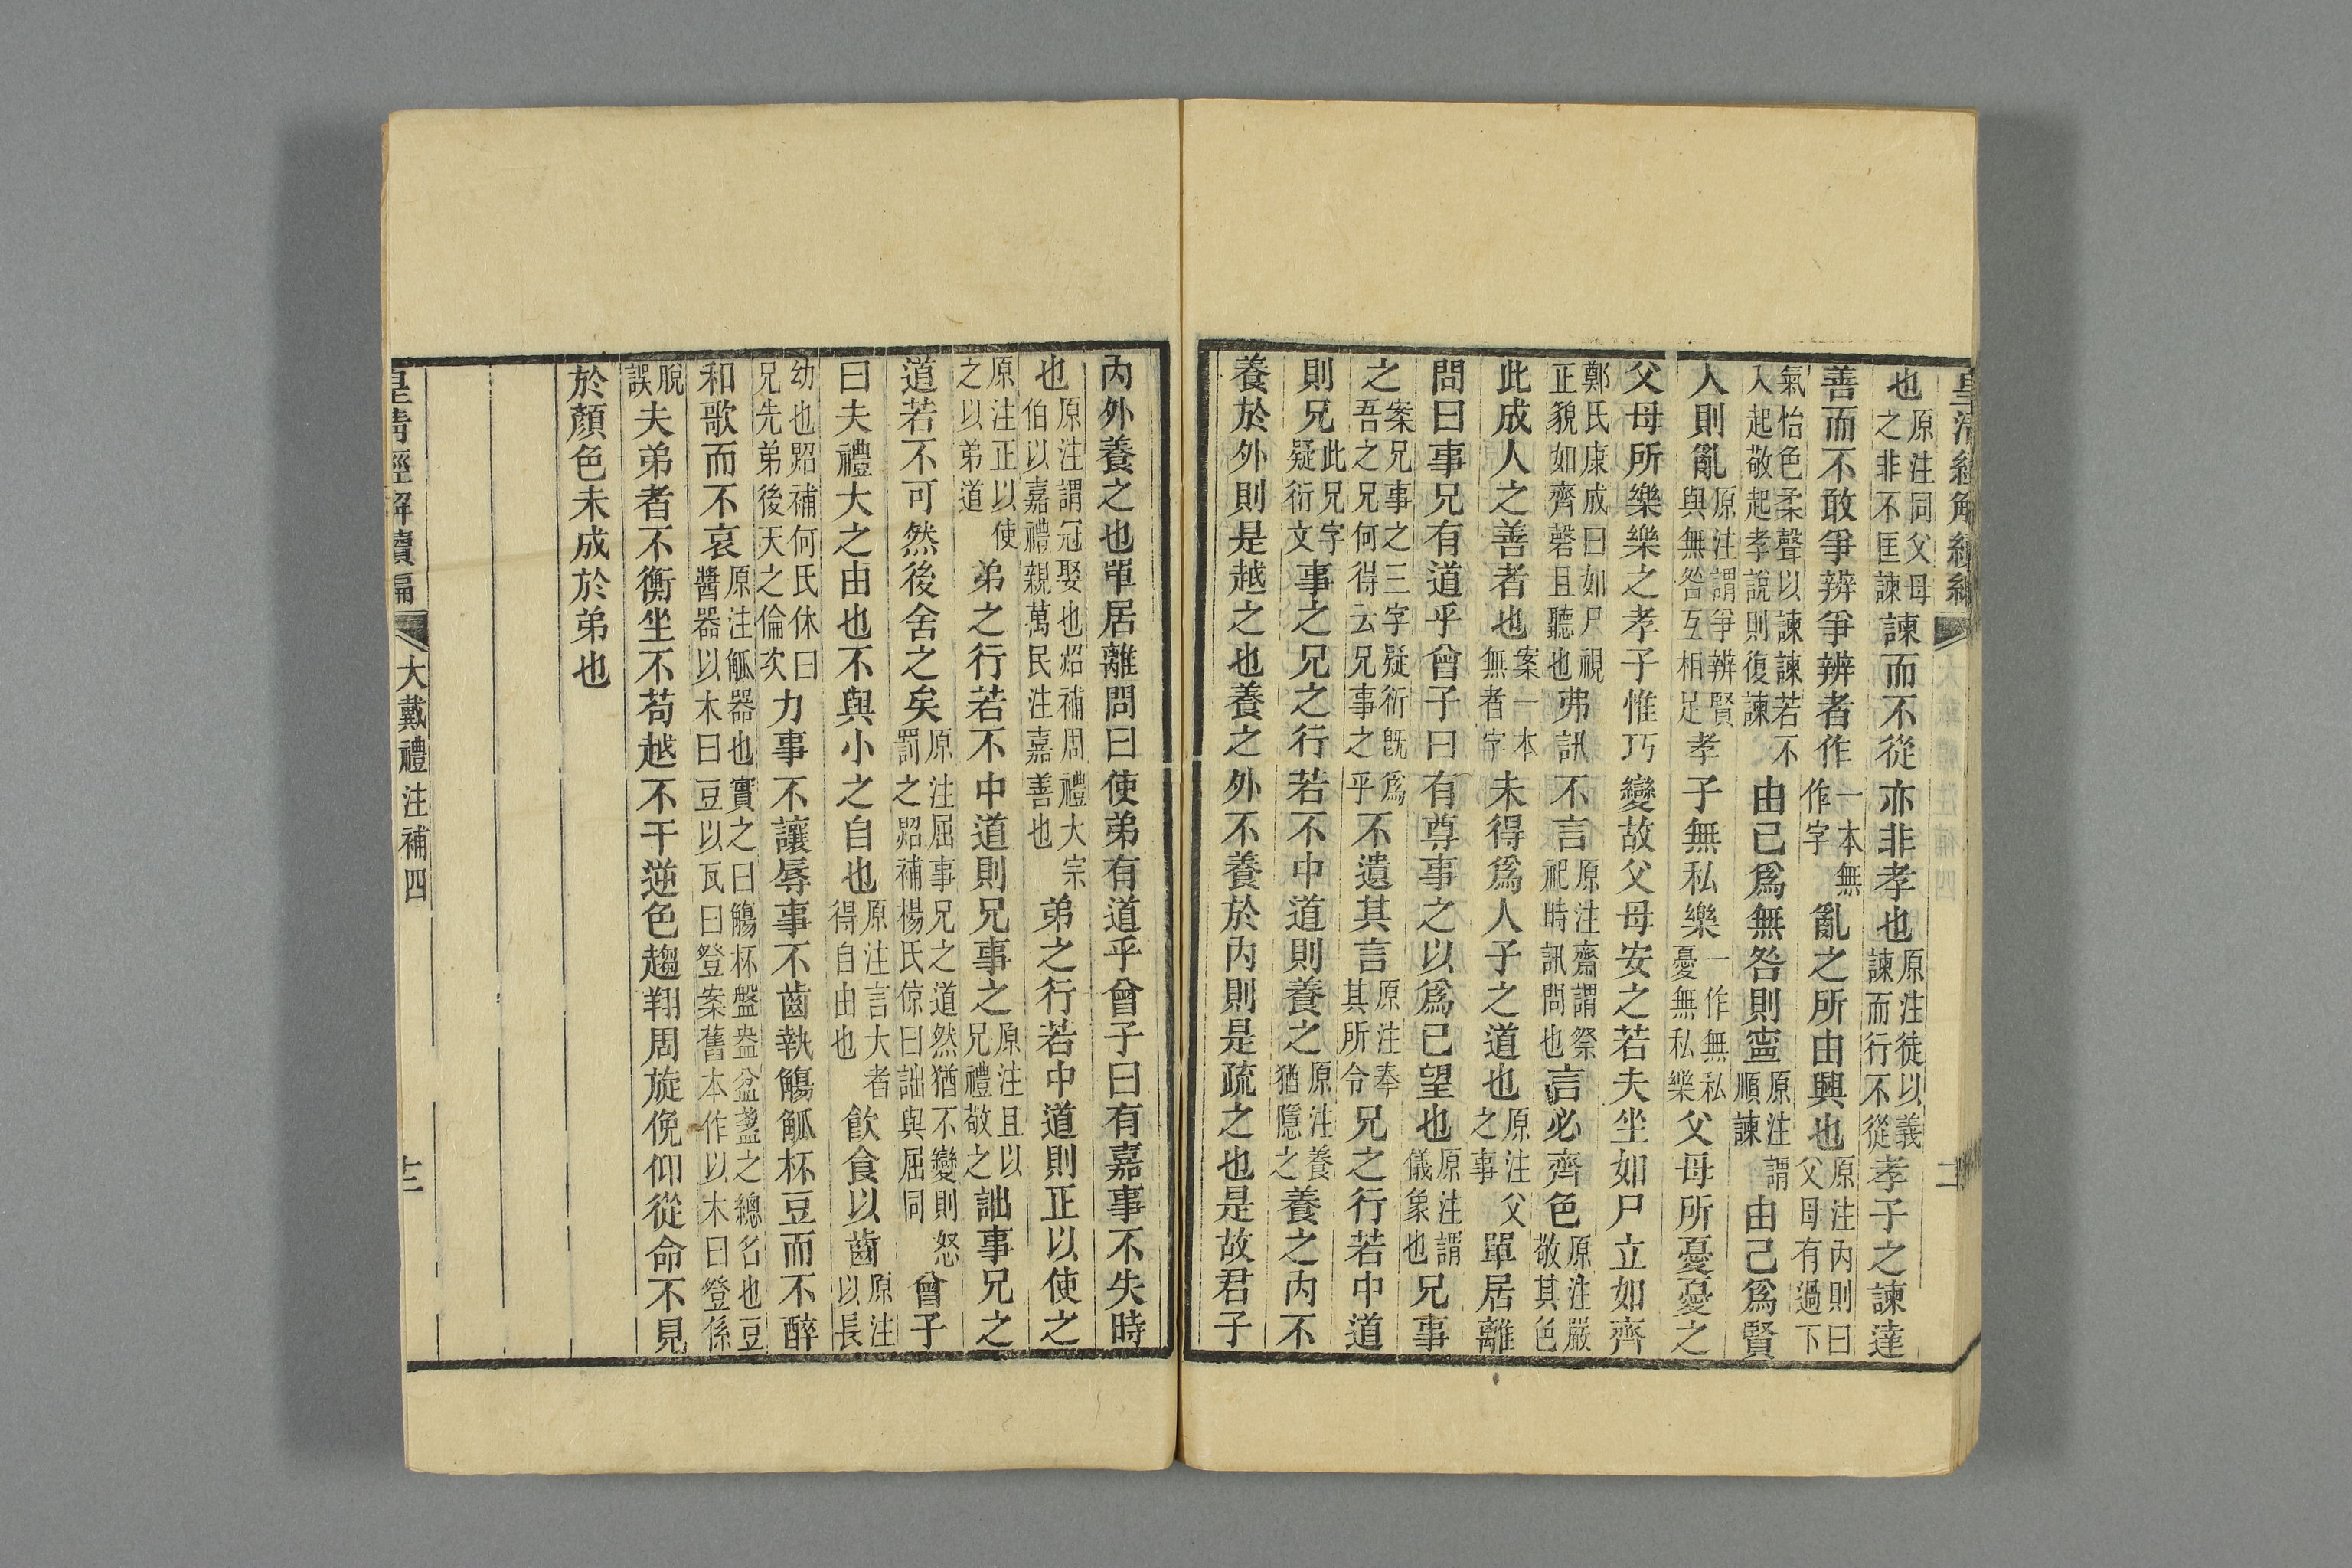 皇清經解續編
也原注同父母之非不匡諫諫而不從亦非孝也原注徒以義諫而行不從孝子之諫達
善而不敢爭辨爭辨者作一本無作字亂之所由興也原注內則曰父母有過下
氣怡色柔聲以諫諫若不入起敬起孝說則復諫由己爲無咎則寍原注謂順諫由己爲賢
人則亂原注謂爭辨賢與無咎互相足孝子無私樂一作無私憂無私樂父母所憂憂之
父母所樂樂之孝子惟巧變故父母安之若夫坐如尸立如齊
鄭氏康成曰如尸視正貌如齊磬且聽也弗訊不言原注齋謂祭祀時訊問也言必齊色原注嚴敬其色
此成人之善者也案一本無者字未得爲人子之道也原注父之事單居離
問曰事兄有道乎曾子曰有尊事之以爲己望也原注謂儀象也兄事
之案兄事之三字疑衍旣爲吾之兄何得云兄事之乎不遺其言原注奉其所令兄之行若中道
則兄此兄字疑衍文事之兄之行若不中道則養之原注養猶隱之養之內不
養於外則是越之也養之外不養於內則是疏之也是故君子
內外養之也單居離問曰使弟有道乎曾子曰有嘉事不失時
也原注謂冠娶也炤補周禮大宗伯以嘉禮親萬民注嘉善也弟之行若中道則正以使之
原注正以使之以弟道弟之行若不中道則兄事之原注且以兄禮敬之詘事兄之
道若不可然後舍之矣原注屈事兄之道然猶不變則怒罰之炤補楊氏倞曰詘與屈同曾子
曰夫禮大之由也不與小之自也原注言大者得自由也飲食以齒原注以長
幼也炤補何氏休曰兄先弟後天之倫次力事不讓辱事不齒執觴觚杯豆而不醉
和歌而不哀原注觚器也實之曰觴杯盤盎盆盞之總名也豆醬器以木曰豆以瓦曰登案舊本作以木曰登係
脫誤夫弟者不衡坐不苟越不干逆色趨翔周旋俛仰從命不見
於顏色未成於弟也
皇清經解續編
大戴禮注補四